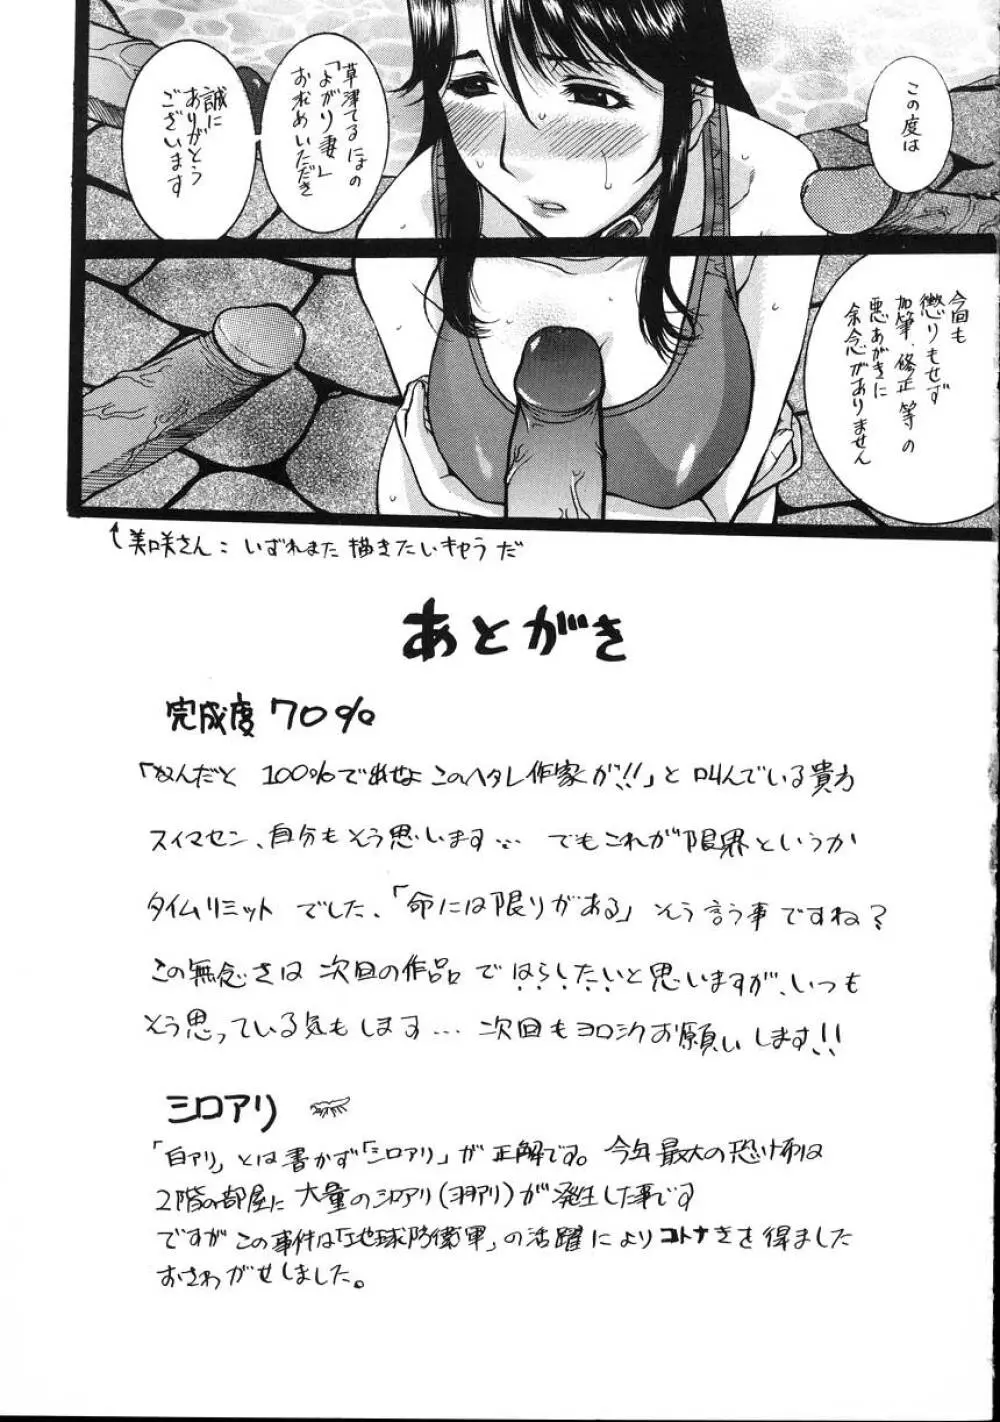 この度は
草津てるにょの
「よがり妻」
お求めいただき
誠に
ありがとう
ございます
今回も
懲りもせず
加筆、修正等の
悪あがきに
余念がありません
美咲さん：いずれまた描きたいキャラだ
あとがき
完成度70%
「なんだと 100%で出せよこのヘタレ作家が!!」と叫んでいる貴方
スイマセン、自分もそう思います… でもこれが限界というか
タイムリミットでした、「命には限りがある」そう言う事ですね?
この無念さは次回の作品ではらしたいと思いますが、いつも
そう思っている気もします… 次回もヨロシクお願いします!!
シロアリ
「白アリ」とは書かず「シロアリ」が正解です。今年最大の恐怖は
2階の部屋に大量のシロアリ(ヨヲアリ)が発生した事です
ですがこの事件は「地球防衛軍」の活躍によりコトナきを得ました
おさわがせしました。